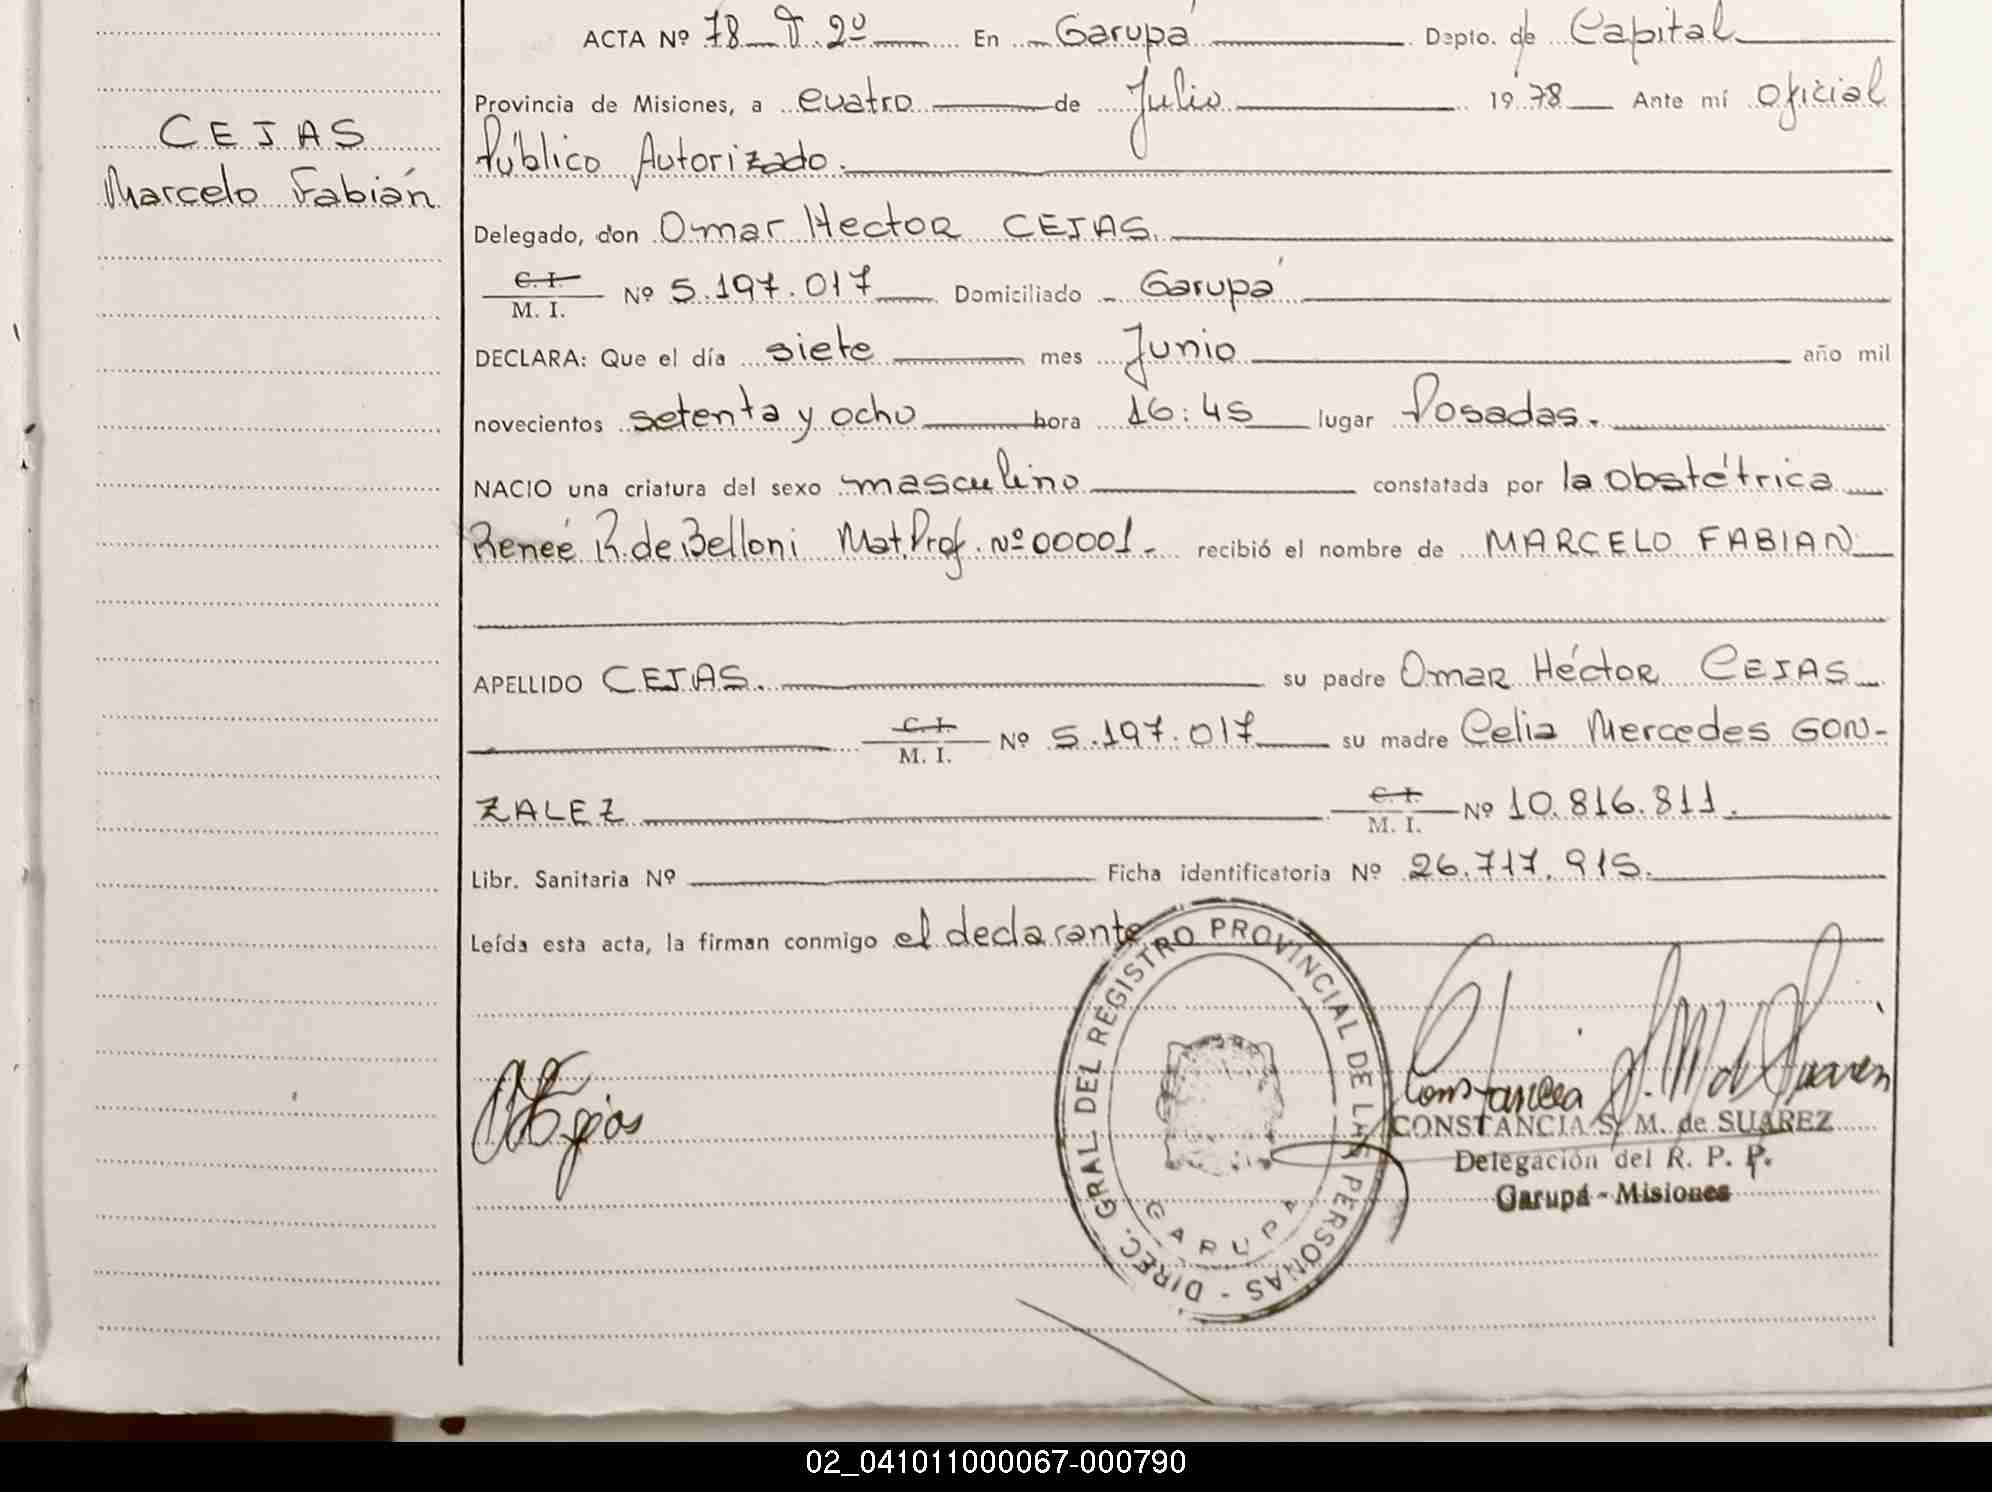 ACTA Nº 78 T. 2º En Garupá Dpto. de Capital
Provincia de Misiones, a cuatro de Julio 1978 Ante mí Oficial
Público Autorizado.
CEJAS
Marcelo Fabián
Delegado, don Omar Hector CEJAS.
C. I.
M. I. Nº 5.197.017 Domiciliado Garupá
DECLARA: Que el día siete mes Junio año mil
novecientos setenta y ocho hora 16:45 lugar Posadas.
NACIO una criatura del sexo masculino constatada por la Obstétrica
Reneé R. de Belloni Mat. Prof. Nº 00001.- recibió el nombre de MARCELO FABIAN
APELLIDO CEJAS. su padre Omar Héctor CEJAS
C. I.
M. I. Nº 5.197.017 su madre Celia Mercedes GON-
ZALEZ C. I.
M. I. Nº 10.816.811.
Libr. Sanitaria Nº Ficha identificatoria Nº 26.717.915.
Leída esta acta, la firman conmigo el declarante
DIREC. GRAL DEL REGISTRO PROVINCIAL DE LAS PERSONAS -
GARUPA
Constancia S. M. de Suarez
CONSTANCIA S. M. de SUAREZ
Delegación del R. P. P.
Garupá - Misiones
02_041011000067-000790